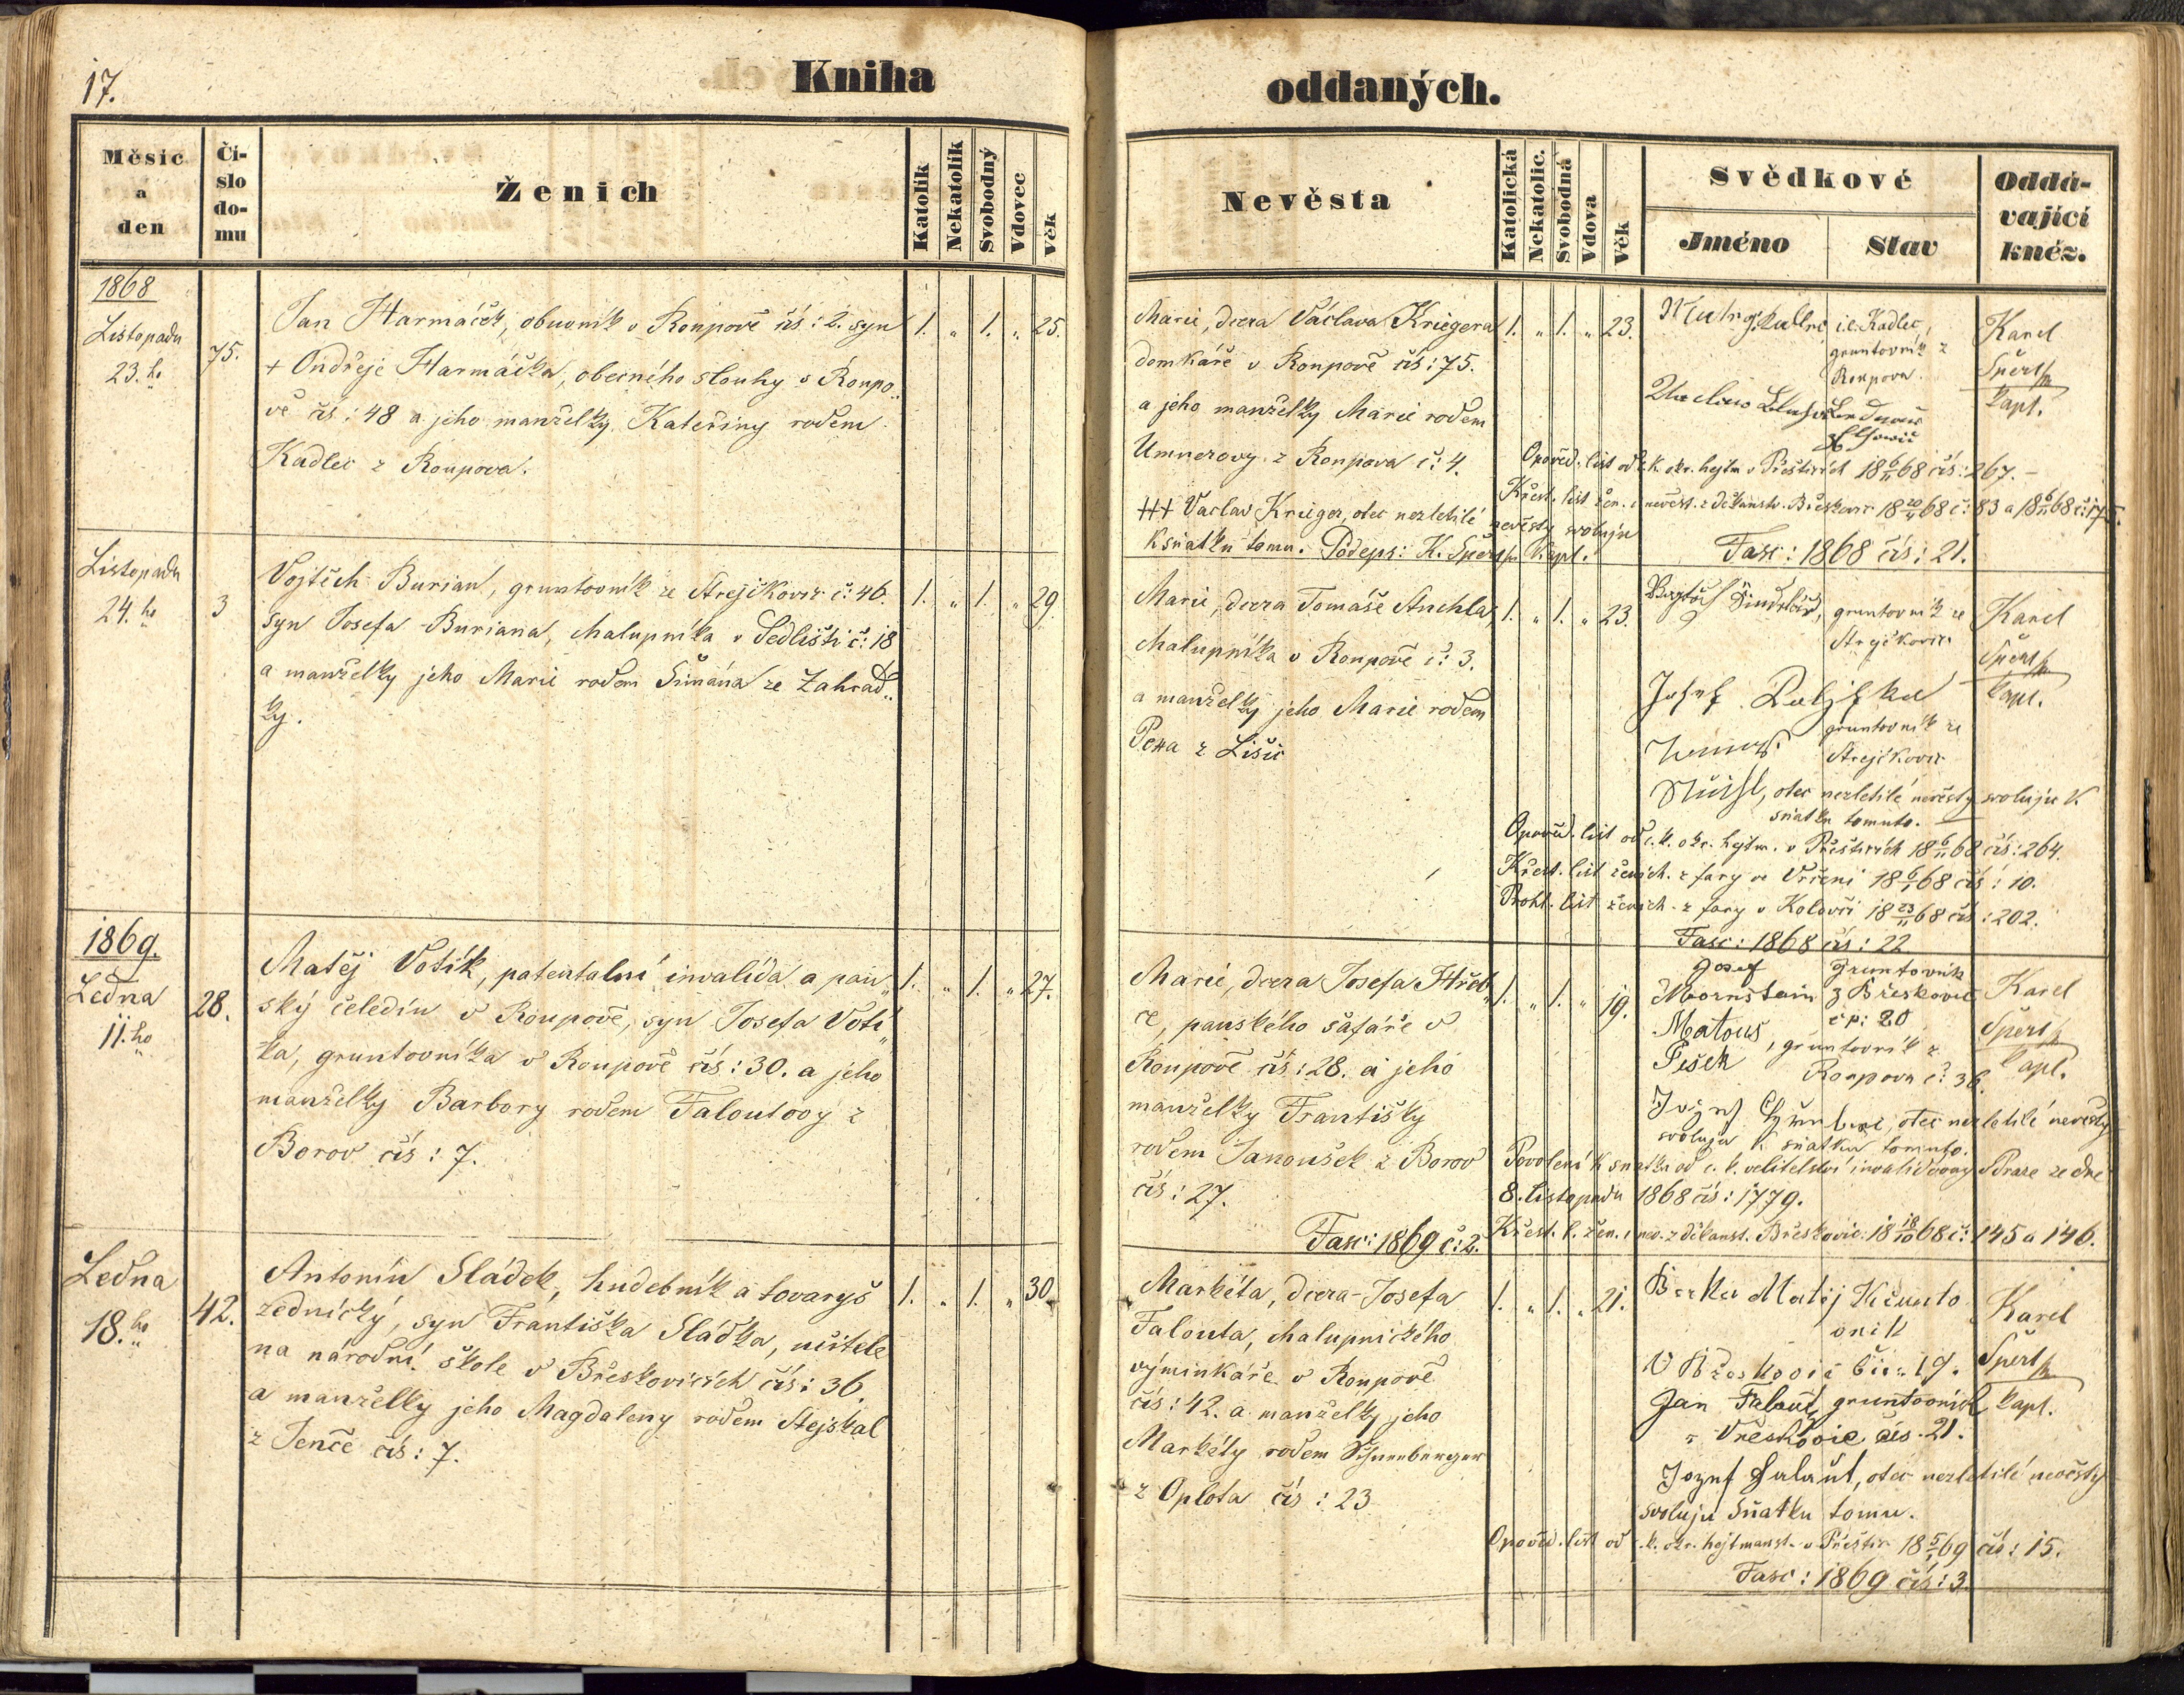 17.
Kniha
oddaných.
Měsíc
a
den
Čí-
slo
do-
mu
Ženich
Katolík
Nekatolík
Svobodný
Vdovec
Věk
Nevěsta
Katolická
Nekatolic.
Svobodná
Vdova
Věk
Svědkové
Jméno
Stav
Oddá-
vající
kněz.
1868
Listopadu
23.ho
75.
Jan Harmáček, obuvník v Roupově čís: 2. syn
+ Ondřeje Harmáčka, obecného slouhy v Roupo„
vě čís: 48 a jeho manželky Kateřiny rodem
Kadlec z Roupova.
1. „ 1. „ 25.
Marie, dcera Václava Kriegera
domkáře v Roupově čís: 75.
a jeho manželky Marie rodem
Umnerovy z Roupova č: 4.
+++ Vaclav Krieger, otec nezletilé nevěsty svoluju
k sňatku tomu. Podeps: K. Špert kapl.
1. „ 1. „ 23.
i.e. Kadlec,
gruntovník z
Roupova.
Karel
Špert
kapl.
Opověd. list od c. k. okr. hejtm v Přešticích 18 6/11 68 čís: 267. –
Křest. list žen. i nevěst. z děkanstv. Břeskovic 18 20/11 68 č: 83 a 18 6/11 68 č: 175.
Fasc: 1868 čís: 21.
Listopadu
24.ho
3
Vojtěch Burian, gruntovník ze Strejčkovic č: 46.
syn Josefa Buriana, chalupníka v Sedlišti č: 18
a manželky jeho Marie rodem Šimána ze Zahrád„
ky.
1. „ 1. „ 29.
Marie, dcera Tomáše Stuchla,
chalupníka v Roupově č: 3.
a manželky jeho Marie rodem
Pexa z Lišic
1. „ 1. „ 23.
gruntovník ze
Strejčkovic
Josef
gruntovník ze
Strejčkovic
Karel
Špert
kapl.
otec nezletilé nevěsty svoluju k
sňatku tomuto.
Opověd. list od c. k. okr. hejtm. v Přešticích 18 6/11 68 čís: 264.
Křest. list ženich. z fary ve Vrčeni 18 6/1 68 čís: 10.
Prohl. list ženich. z fary v Kolovči 18 23/11 68 čís: 202.
Fasc: 1868 čís: 22
1869.
Ledna
11.ho
28.
Matěj Votík, patentalní invalída a pan„
ský čeledín v Roupově, syn Josefa Votí„
ka, gruntovníka v Roupově čís: 30. a jeho
manželky Barbory rodem Faloutovy z
Borov čís: 7.
1. „ 1. „ 27.
Marie, dcera Josefa Hřeb„
ce, panského šafáře v
Roupově čís: 28. a jeho
manželky Františky
rodem Janoušek z Borov
čís: 27.
Fasc: 1869 č: 2.
1. „ 1. „ 19.
Josef
Mornstain
Gruntovník
z Břeskovic
čp: 20
Matous
Pešek
, gruntovník z
Roupova č: 36.
Karel
Špert
kapl.
otec nezletilé nevěsty
svoluju k sňatku tomuto.
Povolení k sňatku od c. k. velitelství invalidovny v Praze ze dne
8. listopadu 1868 čís: 1779.
Křest. l. žen. i nev. z děkanst. Břeskovic: 18 18/10 68 č: 145 a 146.
Ledna
18.ho
42.
Antonín Sládek, hudebník a tovaryš
zednický, syn Františka Sládka, učitele
na národní škole v Břeskovicích čís: 36.
a manželky jeho Magdaleny rodem Stejskal
z Jenče čís: 7.
1. „ 1. „ 30
Markéta, dcera Josefa
Falouta, chalupnického
výminkáře v Roupově
čís: 42. a manželky jeho
Markéty rodem Schneeberger
z Oplota čís: 23
1. „ 1. „ 21.
Matěj
Karel
Špert
kapl.
Jan Falout, gruntovník
z Vřeskovic čís. 21.
Jozef Falaut, otec nezletilé nevěsty
svoluju sňatku tomu.
Opověd. list od c. k. okr. hejtmanst. v Přeštic 18 5/1 69 čís: 15.
Fasc: 1869 čís: 3.